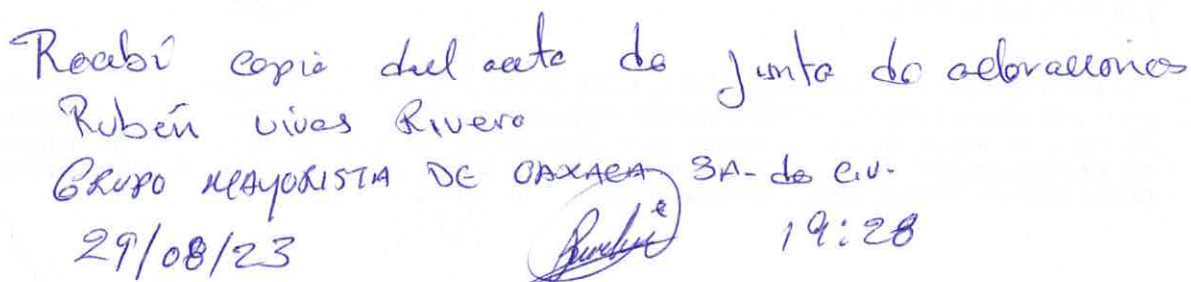 Recibí copia del acta de Junta de aclaraciones
Rubén vivas Rivero
GRUPO MAYORISTA DE OAXACA SA- de C.V.
29/08/23 19:28